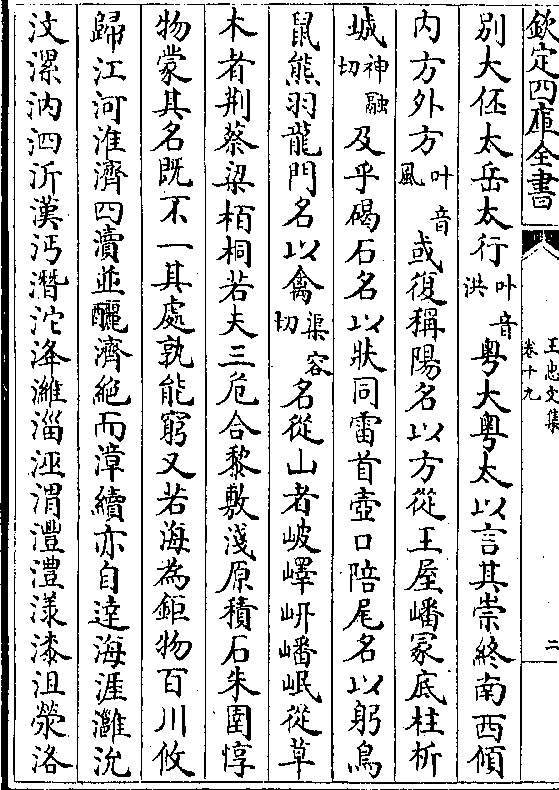 欽定四庫全書
王忠文集
卷十九
二
別大伾太岳太行叶音洪粤大粤太以言其崇終南西傾
内方外方叶音風或復稱陽名以方從王屋嶓冢底柱析
城神融切及乎碣石名以狀同雷首壺口陪尾名以躬鳥
鼠熊羽龍門名以禽渠容切名從山者岐嶧岍嶓岷從草
木者荆蔡梁栢桐若夫三危合黎敷淺原積石朱圉惇
物蒙其名既不一其處孰能窮又若海為鉅物百川攸
歸江河淮濟四瀆並釃濟絶而漳續亦自達海涯灉沇
汶漯汭泗沂漢沔潛沱洚濰淄洭渭灃澧漾漆沮滎洛